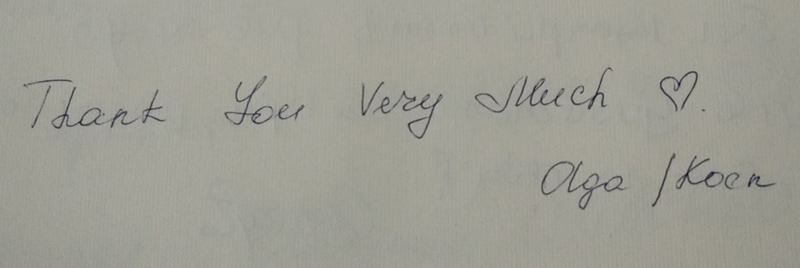 Thank You Very Much ♡.
Olga / Koen